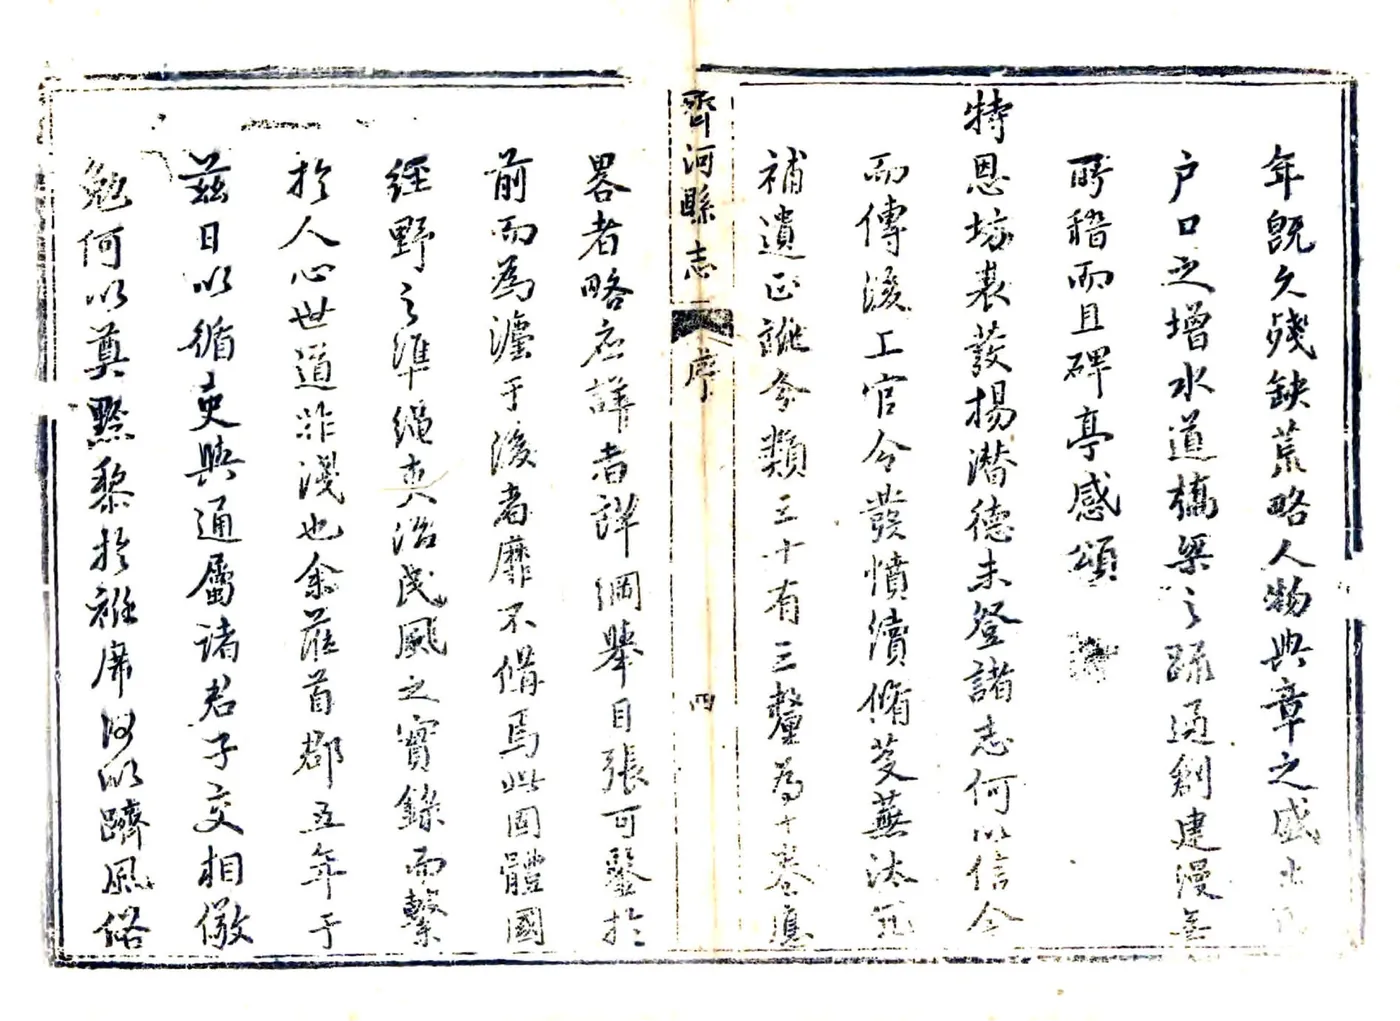 年旣久殘缺荒略人物典章之盛
戶口之增水道橋梁之疏通創建漫無
所稽而且碑亭感頌
特恩坊表發揚潛德未登諸志何以信今
而傳後工官令發憤續脩芟蕪汰冗
補遺正訛分類三十有三釐為十卷應
齊河縣志
序
四
畧者略應詳者詳綱舉目張可鑒於
前而為灋于後者靡不備焉此固體國
經野之準繩吏治民風之實錄而繫
於人心世道非淺也余蒞首郡五年于
茲日以循吏與通屬諸君子交相儆
勉何以奠黔黎於袵席何以躋風俗